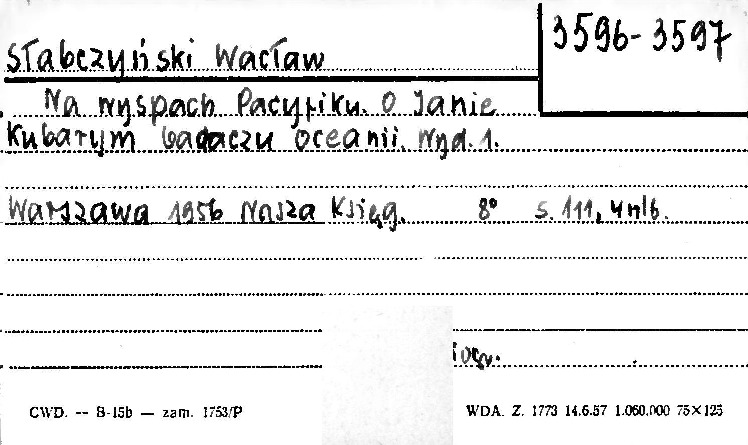 3596-3597
Słabczyński Wacław
Na wyspach Pacyfiku. O Janie
Kubarym badaczu Oceanii. Wyd. 1.
Warszawa 1956 Nasza Księg. 8° s. 111, 4 nlb.
CWD. -- B-15b — zam. 1753/P
WDA. Z. 1773 14.6.57 1.060.000 75×125